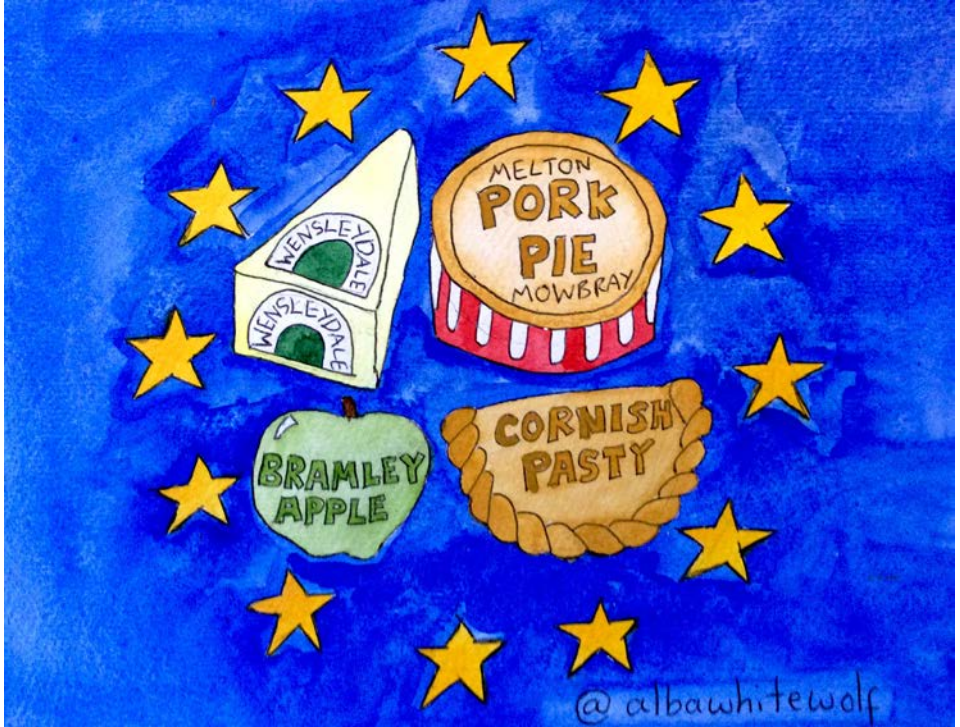 WENSLEYDALE
WENSLEYDALE
MELTON
PORK
PIE
MOWBRAY
BRAMLEY
APPLE
CORNISH
PASTY
@albawhitewolf